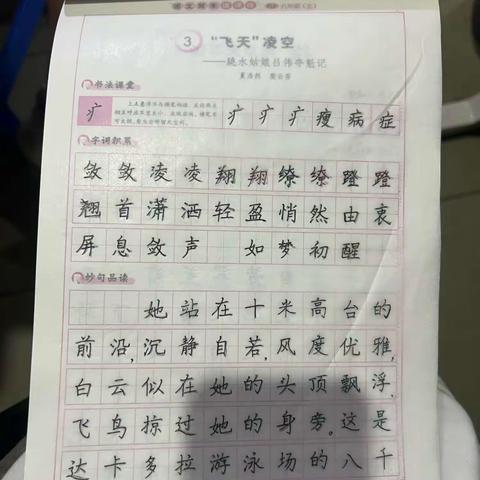 3 “飞天”凌空
——跳水姑娘吕伟夺魁记
夏浩然 樊云芳
书法课堂
疒 疒 疒 疒 瘦 病 症
字词积累
敛 敛 凌 凌 翔 翔 缭 缭 蹬 蹬
翘 首 潇 洒 轻 盈 悄 然 由 衷
屏 息 敛 声 如 梦 初 醒
妙句品读
她 站 在 十 米 高 台 的
前 沿, 沉 静 自 若, 风 度 优 雅,
白 云 似 在 她 的 头 顶 飘 浮,
飞 鸟 掠 过 她 的 身 旁。 这 是
达 卡 多 拉 游 泳 场 的 八 千